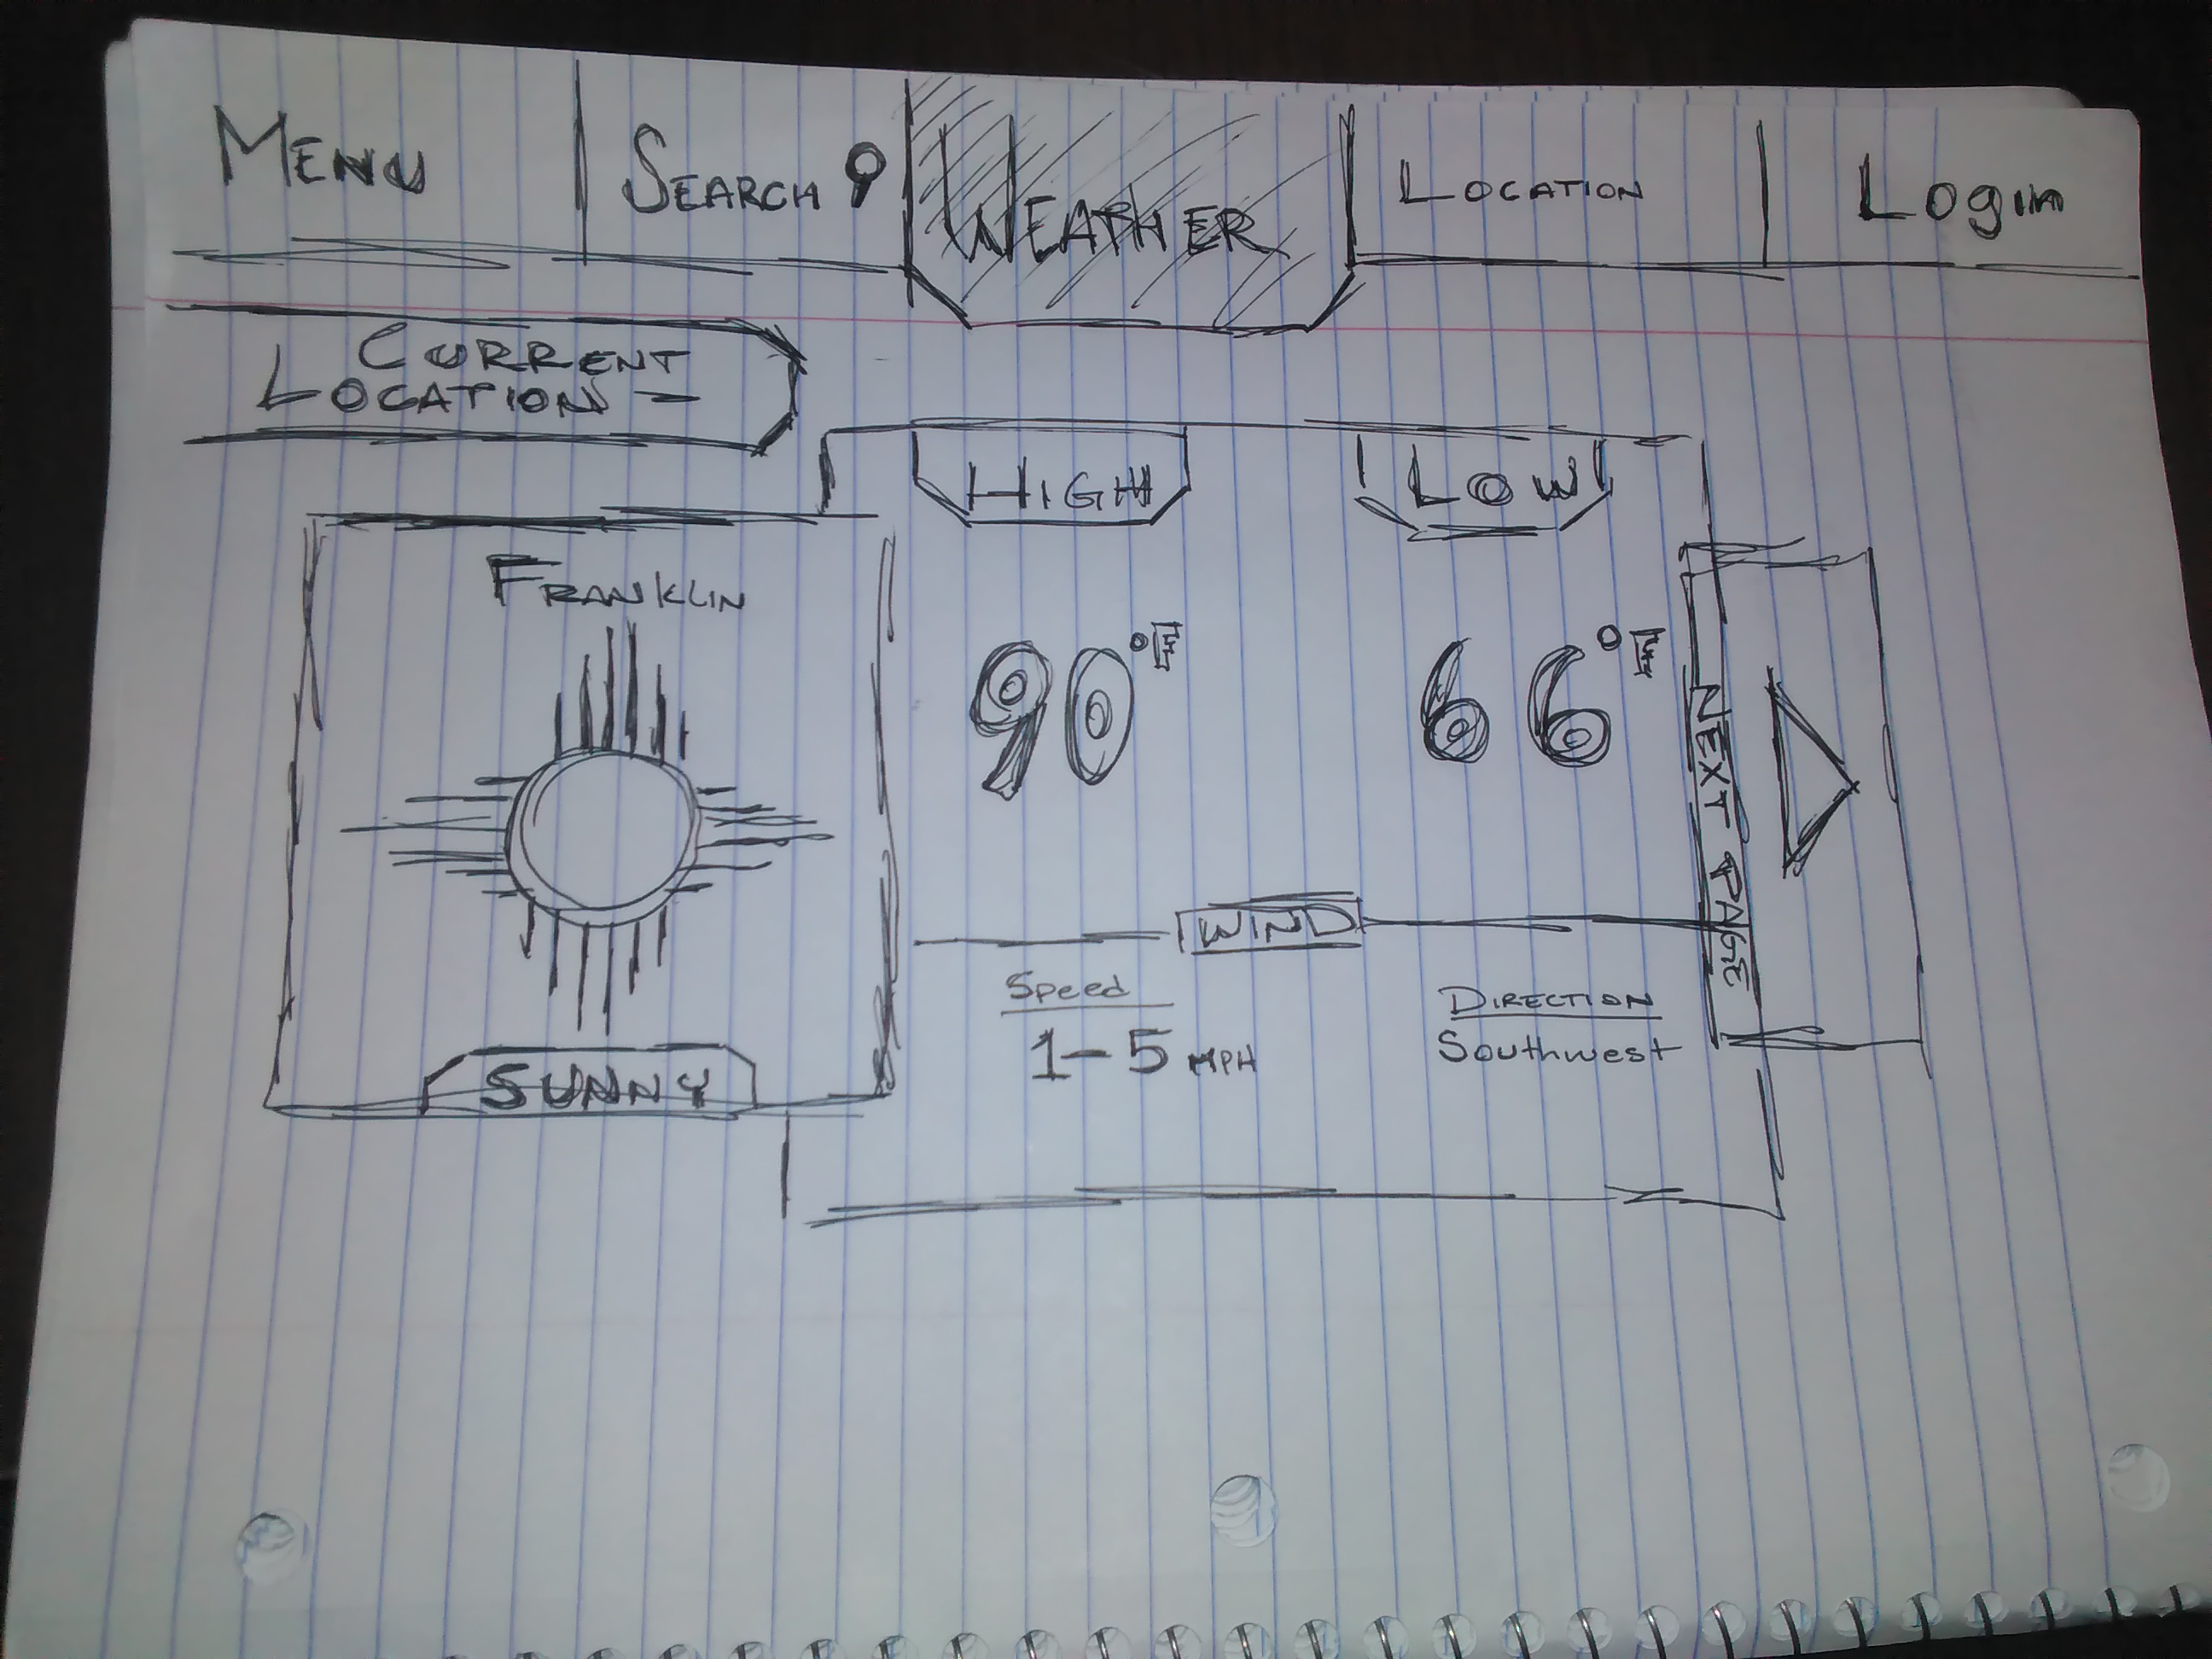 MENU
SEARCH
WEATHER
LOCATION
Login
CURRENT
LOCATION -
HIGH
LOW
FRANKLIN
90°F
66°F
NEXT PAGE
WIND
Speed
1-5 MPH
DIRECTION
Southwest
SUNNY